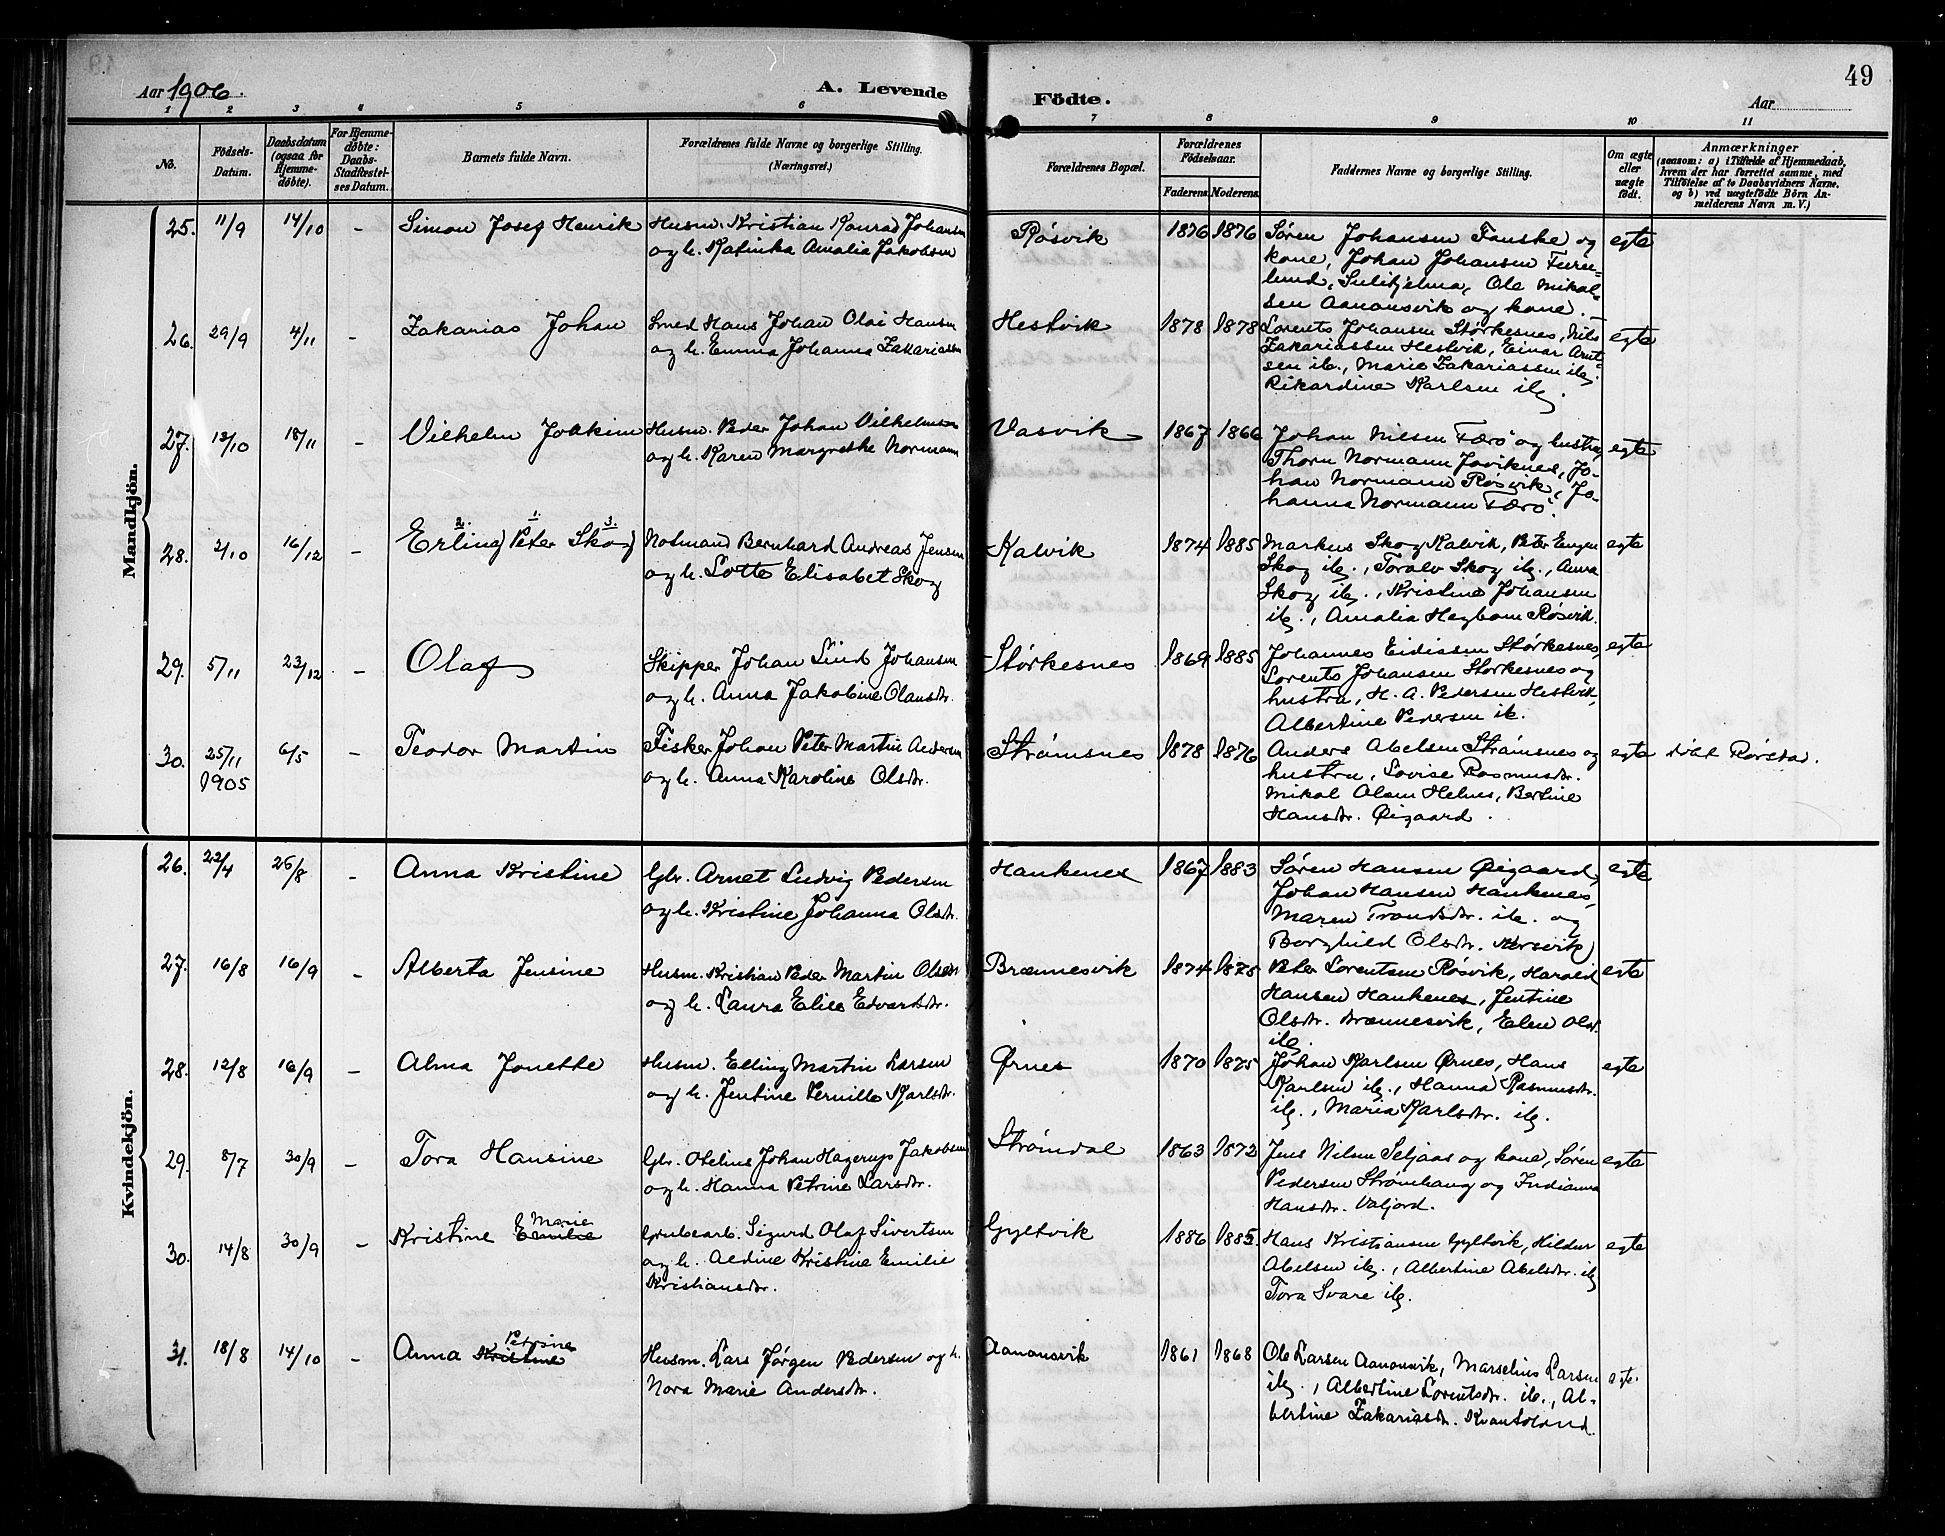 49
Aar 1906.
A. Levende
Födte.
Aar
1 2 3 4 5 6 7 8 9 10 11
No.
Födsels-
Datum.
Daabsdatum
(ogsaa for
Hjemme-
døbte).
For Hjemme-
døbte:
Daabs-
Stadfæstel-
ses Datum.
Barnets fulde Navn.
Forældrenes fulde Navne og borgerlige Stilling.
(Næringsvei.)
Forældrenes Bopæl.
Forældrenes
Födselsaar.
Faderens. Moderens.
Faddernes Navne og borgerlige Stilling.
Om ægte
eller
uægte
født.
Anmærkninger
(saasom: a) i Tilfælde af Hjemmedaab,
hvem der har forrettet samme, med
Tilföielse af to Daabsvidners Navne,
og b) ved uægtefödte Börn An-
melderens Navn m. V.)
Mandkjön.
25. 11/9 14/10 - Simon Josef Henrik
Husm. Kristian Konrad Johansen
og h. Katinka Amalia Jakobsen
Røsvik 1876 1876
Søren Johansen Fauske og
kone, Johan Johansen Furu-
lund, Sulitjelma, Ole Mikal-
sen Aanonsvik og kone.
egte
26. 29/9 4/11 - Zakarias Johan
Smed Hans Johan Olai Hansen
og h. Emma Johanna Zakariassen
Hestvik 1878 1878
Lorents Johansen Størkesnes, Nils
Zakariassen Hestvik, Einar Arnt-
sen ib., Marie Zakariassen ib.
Rikardine Karlsen ib.
egte
27. 13/10 18/11 - Vilhelm Joakim
Husm. Peder Johan Vilhelmsen
og h. Karen Margrethe Normann
Vasvik 1867 1866
Johan Nilsen Færø og hustru,
Thorn Normann Joviknes, Jo-
han Normann Røsvik, Jo-
hanna Normann Færø.
egte
28. 2/10 16/12 - Erling Peter Skog
2. 1. 3.
Notmand Bernhard Andreas Jensen
og h. Lotte Elisabet Skog
Kalvik 1874 1885
Markus Skog Kalvik, Peter Eugen
Skog ib., Toralv Skog ib., Anna
Skog ib., Kristine Johansen
ib., Amalia Hegbom Røsvik.
egte
29. 5/11 23/12 - Olaf
Skipper Johan Lind Johansen
og h. Anna Jakobine Olausdtr.
Størkesnes 1869 1885
Johannes Eidissen Størkesnes,
Lorents Johansen Størkesnes og
hustru, H. A. Pedersen Hestvik,
Albertine Pedersen ib.
egte
30. 25/11 1905 6/5 - Teodor Martin
Fisker Johan Peter Martin Andersen
og h. Anna Karoline Olsdtr.
Strømsnes 1878 1876
Anders Abelsen Strømsnes og
hustru, Lovise Rasmusdtr.
Mikal Olsen Helnes, Bertine
Hansdtr. Øigaard.
egte
døbt Rørstad.
Kvindekjön.
26. 22/4 26/8 - Anna Kristine
Gbr. Arnet Ludvig Pedersen
og h. Kristine Johanna Olsdtr.
Hankenes 1867 1883
Søren Hansen Øigaard,
Johan Hansen Hankenes,
Maren Trondsdtr. ib. og
Borghild Olsdtr. Kvervik
egte
27. 16/8 16/9 - Alberta Jensine
Husm. Kristian Peder Martin Olsen
og h. Laura Elise Edvardsdtr.
Brænnesvik 1874 1875
Peter Lorentsen Røsvik, Harald
Hansen Hankenes, Jentine
Olsdtr. Brænnesvik, Elen Olsd.
ib.
egte
28. 12/8 16/9 - Alma Jonette
Husm. Elling Martin Larsen
og h. Jentine Pernille Karlsdtr.
Ørnes 1870 1875
Johan Karlsen Ørnes, Hans
Karlsen ib., Hanna Rasmusdtr.
ib., Maria Karlsdtr. ib.
egte
29. 8/7 30/9 - Tora Hansine
Gbr. Obelius Johan Hagerup Jakobsen
og h. Hanna Petrine Larsdtr.
Strømdal 1863 1872
Jens Nilsen Seljaas og kone, Søren
Pedersen Strømhaug og Indianna
Hansdtr. Valjord.
egte
30. 14/8 30/9 - Kristine Emilie
Marie
Grubearb. Sigurd Olaf Sivertsen
og h. Aldine Kristine Emilie
Kristiansdtr.
Gyltvik 1886 1885.
Hans Kristiansen Gyltvik, Hildur
Abelsen ib., Albertine Abelsdtr. ib
Tora Svare ib.
egte
31. 18/8 14/10 - Anna Kristine
Petrine
Husm. Lars Jørgen Pedersen og h.
Nora Marie Andersdtr.
Aanonsvik 1861 1868
Ole Larsen Aanonsvik, Marselius Larsen
ib., Albertine Lorentsdtr. ib., Al-
bertine Zakariasdtr. Kvantoland.
egte